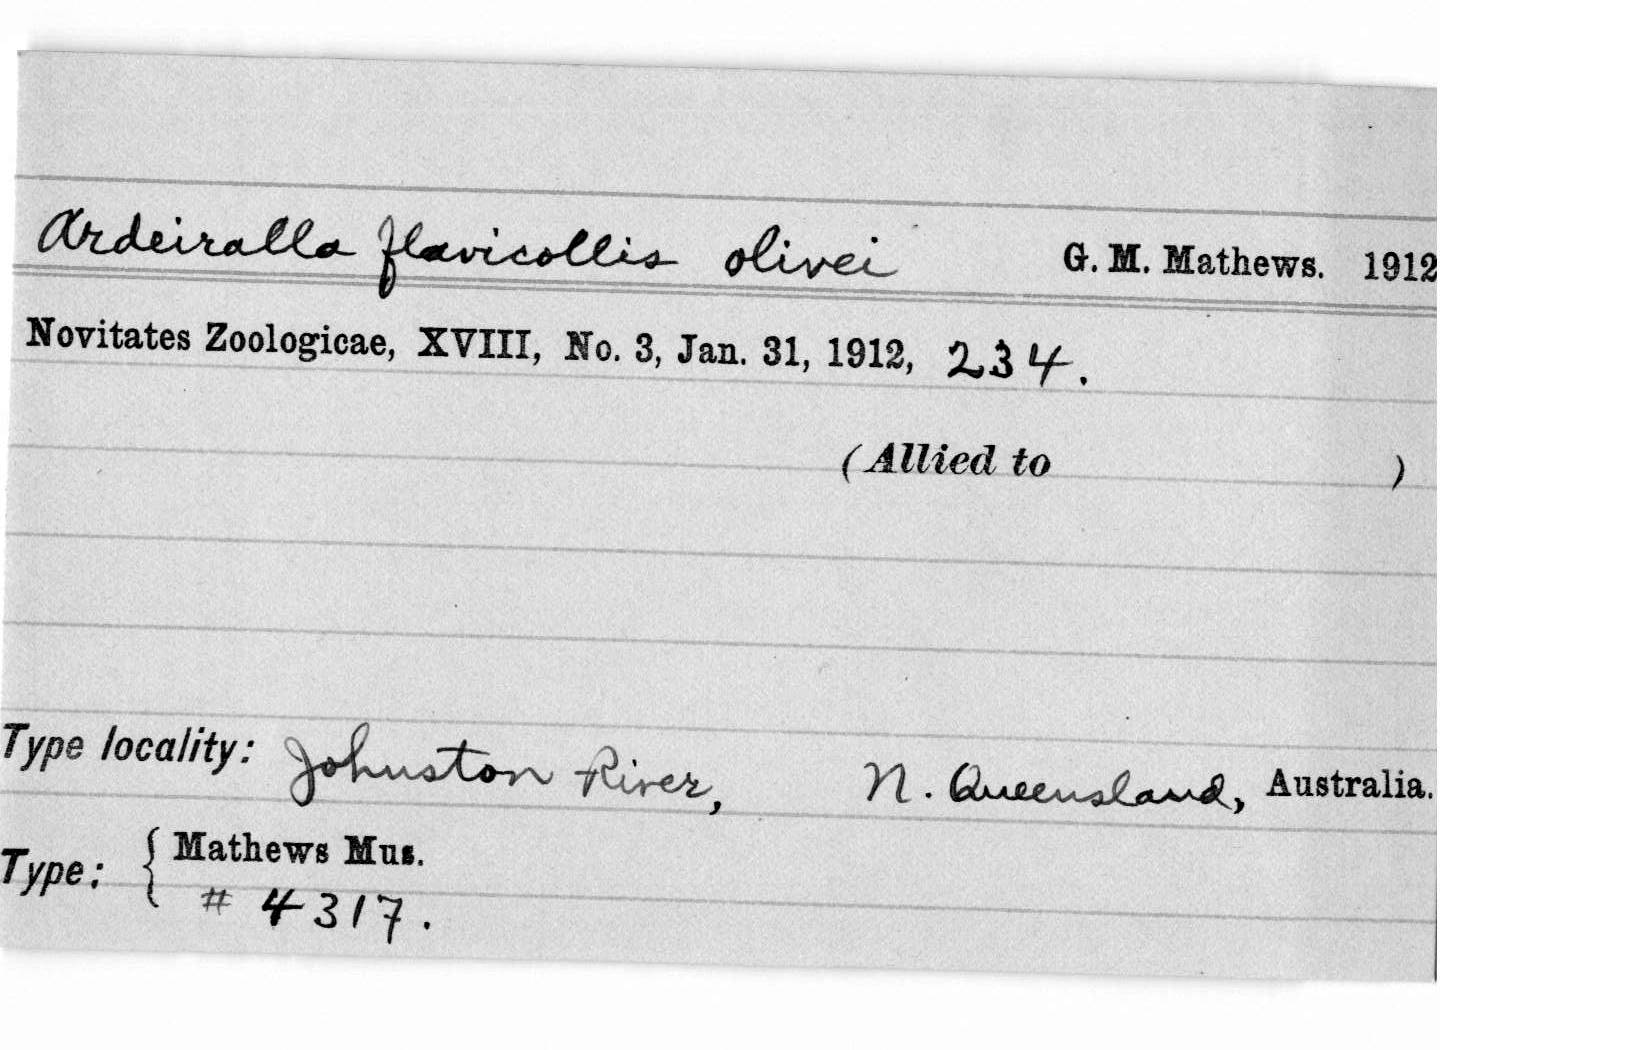 Ardeiralla flavicollis olivei G. M. Mathews. 1912
Novitates Zoologicae, XVIII, No. 3, Jan. 31, 1912, 234.
(Allied to )
Type locality: Johnston River, N. Queensland, Australia.
Type: { Mathews Mus.
# 4317.